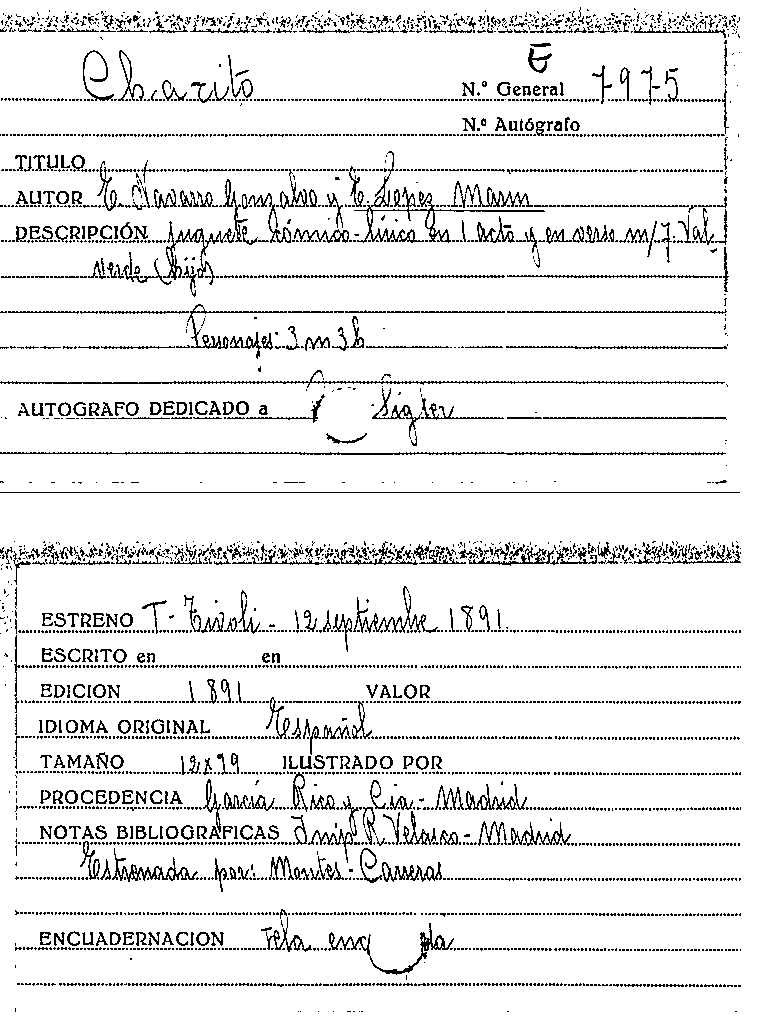 E
Charito N.º General 7975
N.º Autógrafo
TITULO
AUTOR E. Navarro Gonzalvo y E. Lopez Marin
DESCRIPCIÓN Juguete cómico-lírico en 1 acto y en verso m/ J. Val-
verde (hijo)
Personajes: 3 m 3 h
AUTOGRAFO DEDICADO a Sigler
ESTRENO T- Tivoli - 12 septiembre 1891.
ESCRITO en en
EDICION 1891 VALOR
IDIOMA ORIGINAL Español
TAMAÑO 12x19 ILUSTRADO POR
PROCEDENCIA García Rico y Cia - Madrid
NOTAS BIBLIOGRAFICAS Imp R. Velasco - Madrid
Estrenada por: Montes - Carreras
ENCUADERNACION Tela